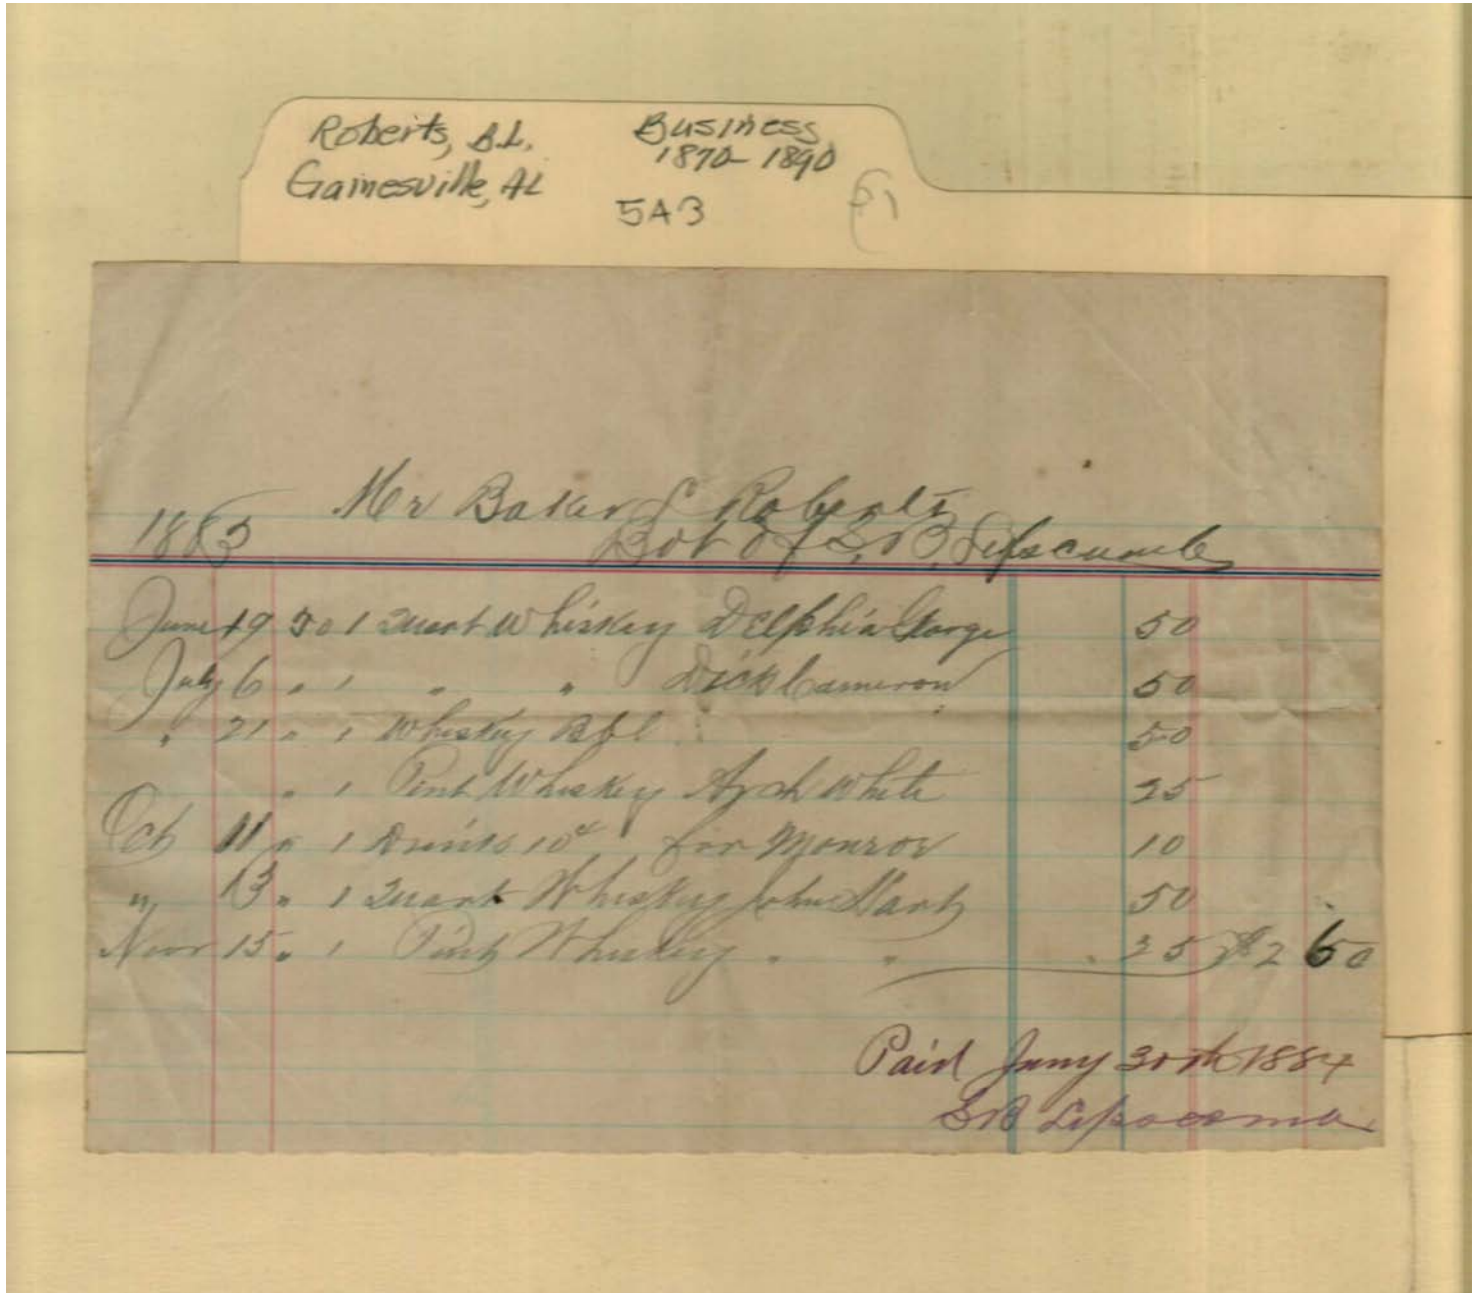 Roberts, B.L. Business
Gainesville, AL 1870-1890
5A3
Mr Baker L Roberts
1883 Bot of S. B. Lipscumb
June 19 To 1 Quart Whiskey Delphia George 50
July 6 " 1 " " Dick Cameron 50
" 21 " 1 Whiskey Bbl 50
" 1 Pint Whiskey Arch White 25
Oct 11 " 1 Drink 10¢ for Monroe 10
" 13 " 1 Quart Whiskey John Hart 50
Novr 15 " 1 Pint Whiskey " " 25 $2 60
Paid Jany 30th 1884
SB Lipscomb